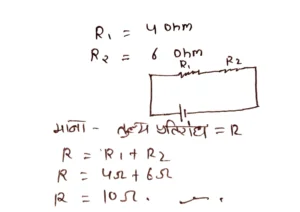 R₁ = 4 ohm
R₂ = 6 ohm
R₁ R₂
माना - तुल्य प्रतिरोध = R
R = R₁ + R₂
R = 4Ω + 6Ω
R = 10Ω.